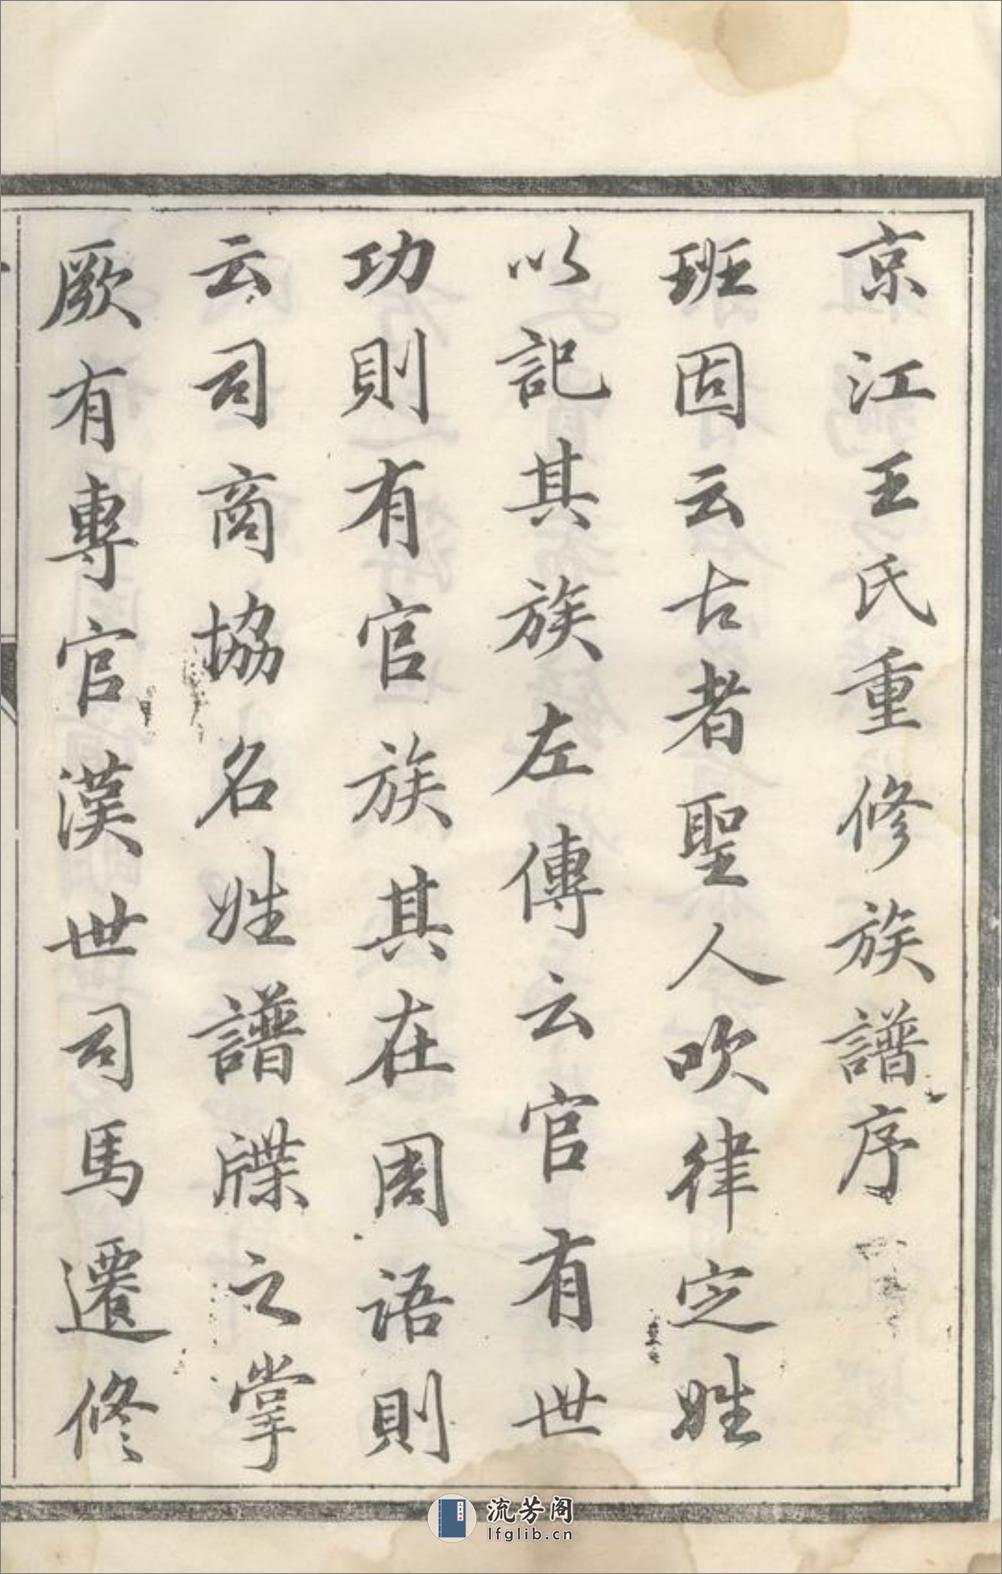 京江王氏重修族譜序
班固云古者聖人吹律定姓
以記其族左傳云官有世
功則有官族其在周語則
云司商協名姓譜牒之掌
厥有專官漢世司馬遷修
流芳阁
lfglib.cn